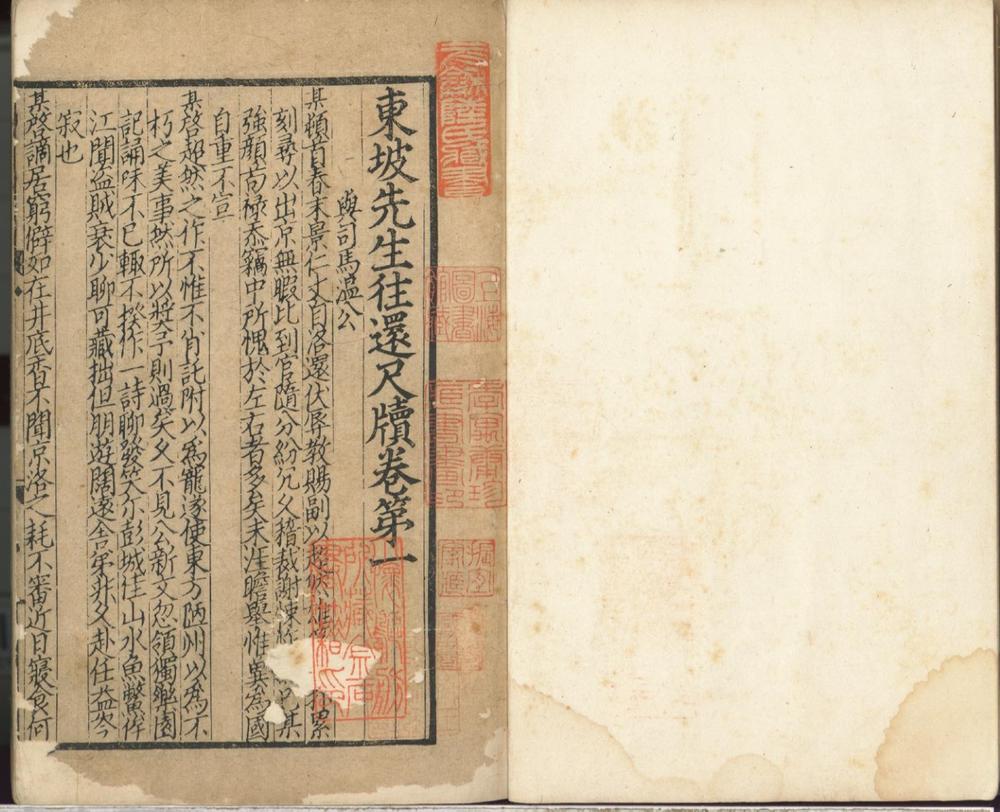 東坡先生往還尺牘卷第一
與司馬溫公
某頓首春末景仁丈自洛還伏辱教賜副以超然雄 累
刻尋以出京無暇比到官隨分紛冗久稽裁謝悚 某
強顔苟祿忝竊中所愧於左右者多矣未涯瞻舉惟兾爲國
自重不宣
某啓超然之作不惟不肖託附以爲寵遂使東方陋州以爲不
朽之美事然所以奬予則過矣久不見公新文忽領獨樂園
記誦味不已輙不揆作一詩聊發一笑尔彭城佳山水魚蟹侔
江聞盗賊衰少聊可藏拙但朋遊闊遠舍弟非久赴任益岑
寂也
某啓謫居窮僻如在井底杳不聞京洛之耗不審近日寢食何